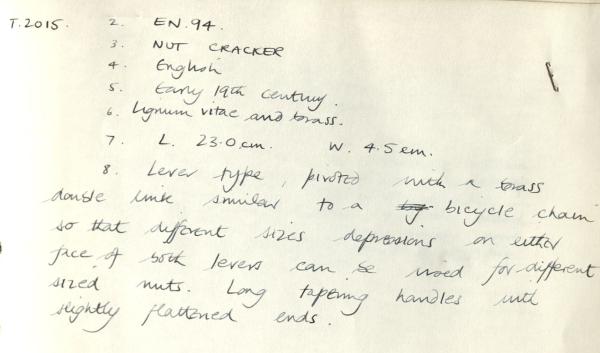 T.2015. 2. EN.94.
3. NUT CRACKER
4. English
5. Early 19th century.
6. Lignum vitae and brass.
7. L. 23.0 cm. W. 4.5 cm.
8. Lever type, pivoted with a brass
double link similar to a by bicycle chain
so that different sizes depressions on either
face of both levers can be used for different
sized nuts. Long tapering handles with
slightly flattened ends.